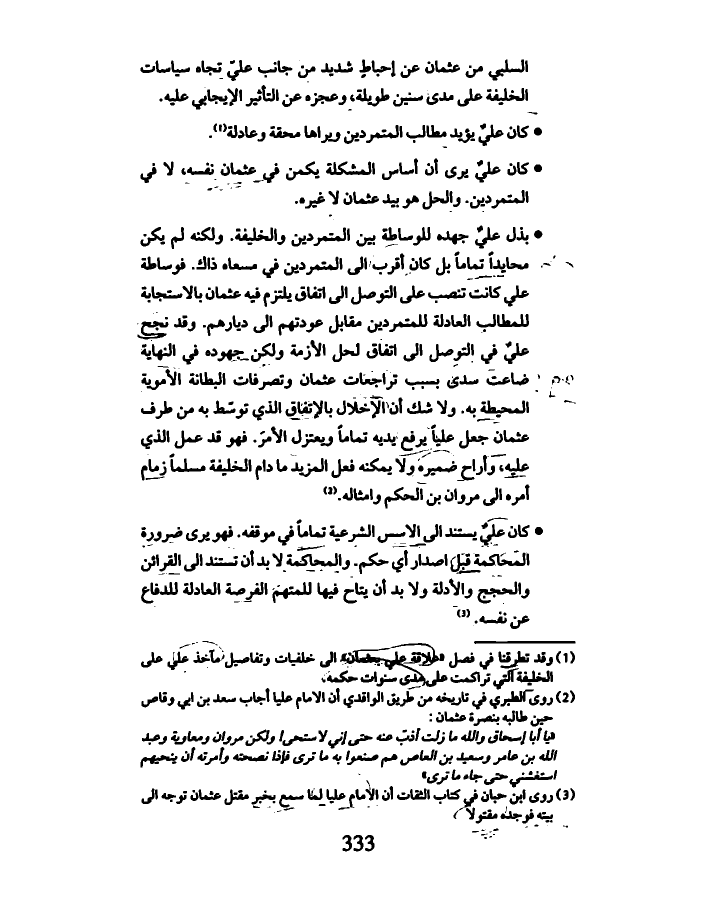 السلبي من عثمان عن إحباطٍ شديد من جانب عليّ تجاه سياسات
الخليفة على مدى سنين طويلة، وعجزه عن التأثير الإيجابي عليه.
• كان عليٌ يؤيد مطالب المتمردين ويراها محقة وعادلة(1).
• كان عليٌ يرى أن أساس المشكلة يكمن في عثمان نفسه، لا في
المتمردين. والحل هو بيد عثمان لا غيره.
• بذل عليٌ جهده للوساطة بين المتمردين والخليفة. ولكنه لم يكن
محايداً تماماً بل كان أقرب الى المتمردين في مسعاه ذاك. فوساطة
علي كانت تنصب على التوصل الى اتفاق يلتزم فيه عثمان بالاستجابة
للمطالب العادلة للمتمردين مقابل عودتهم الى ديارهم. وقد نجح
عليٌ في التوصل الى اتفاق لحل الأزمة ولكن جهوده في النهاية
ضاعت سدىً بسبب تراجعات عثمان وتصرفات البطانة الأموية
المحيطة به. ولا شك أن الإخلال بالإتفاق الذي توسّط به من طرف
عثمان جعل علياً يرفع يديه تماماً ويعتزل الأمرَ. فهو قد عمل الذي
عليه، وأراح ضميره ولا يمكنه فعل المزيد ما دام الخليفة مسلماً زمام
أمره الى مروان بن الحكم وامثاله.(2)
• كان عليٌ يستند الى الاسس الشرعية تماماً في موقفه. فهو يرى ضرورة
المحاكمة قبل اصدار أي حكم. والمحاكمة لا بد أن تستند الى القرائن
والحجج والأدلة ولا بد أن يتاح فيها للمتهم الفرصة العادلة للدفاع
عن نفسه. (3)
(1) وقد تطرقنا في فصل «علاقة علي بعثمان» الى خلفيات وتفاصيل مآخذ علي على
الخليفة التي تراكمت على مدى سنوات حكمه.
(2) روى الطبري في تاريخه من طريق الواقدي أن الامام عليا أجاب سعد بن ابي وقاص
حين طالبه بنصرة عثمان :
«يا أبا إسحاق والله ما زلت أذبّ عنه حتى إني لاستحي! ولكن مروان ومعاوية وعبد
الله بن عامر وسعيد بن العاص هم صنعوا به ما ترى فإذا نصحته وأمرته أن ينحيهم
استغشني حتى جاء ما ترى»
(3) روى ابن حبان في كتاب الثقات أن الأمام عليا لما سمع بخبر مقتل عثمان توجه الى
بيته فوجده مقتولاً
333